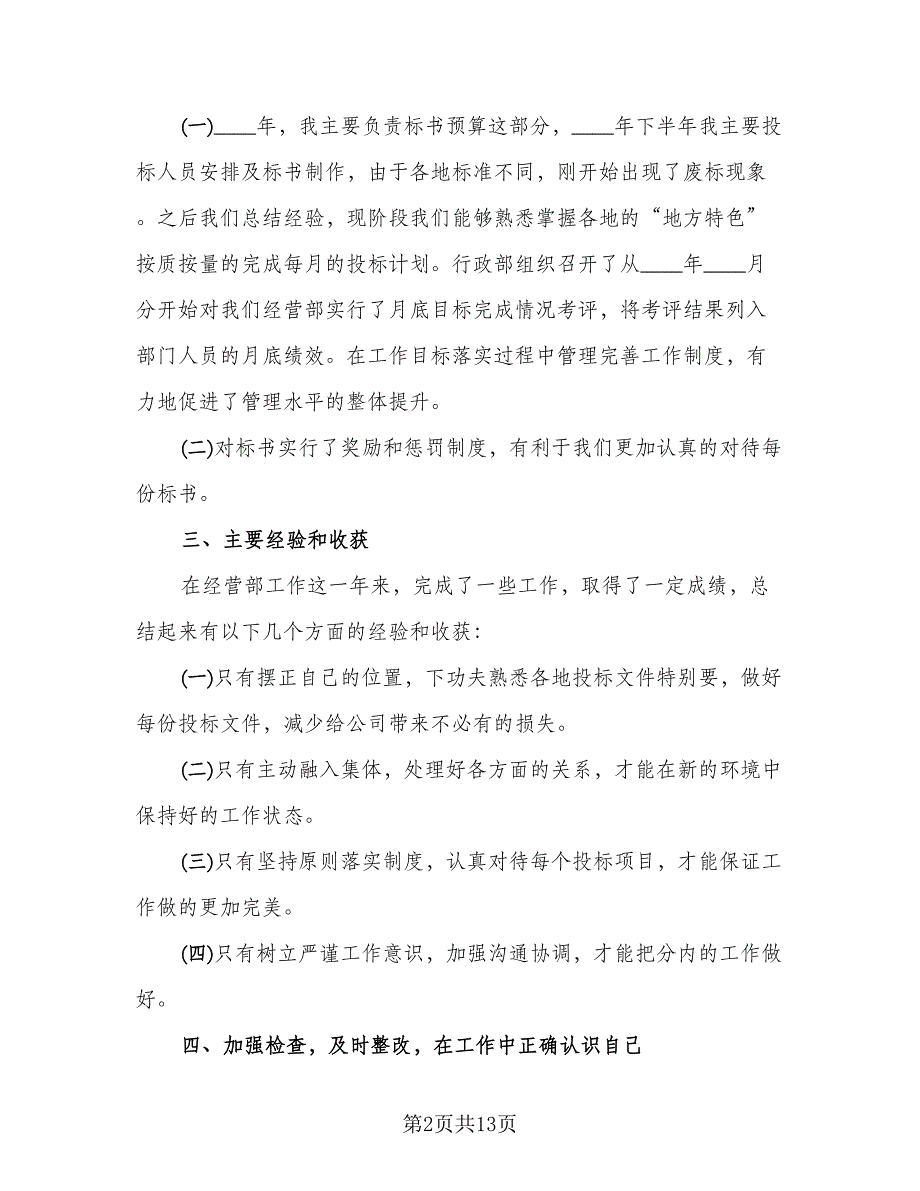 (一)____年，我主要负责标书预算这部分，____年下半年我主要投
标人员安排及标书制作，由于各地标准不同，刚开始出现了废标现象
。之后我们总结经验，现阶段我们能够熟悉掌握各地的“地方特色”
按质按量的完成每月的投标计划。行政部组织召开了从____年____月
分开始对我们经营部实行了月底目标完成情况考评，将考评结果列入
部门人员的月底绩效。在工作目标落实过程中管理完善工作制度，有
力地促进了管理水平的整体提升。
(二)对标书实行了奖励和惩罚制度，有利于我们更加认真的对待每
份标书。
三、主要经验和收获
在经营部工作这一年来，完成了一些工作，取得了一定成绩，总
结起来有以下几个方面的经验和收获：
(一)只有摆正自己的位置，下功夫熟悉各地投标文件特别要，做好
每份投标文件，减少给公司带来不必有的损失。
(二)只有主动融入集体，处理好各方面的关系，才能在新的环境中
保持好的工作状态。
(三)只有坚持原则落实制度，认真对待每个投标项目，才能保证工
作做的更加完美。
(四)只有树立严谨工作意识，加强沟通协调，才能把分内的工作做
好。
四、加强检查，及时整改，在工作中正确认识自己
第2页共13页